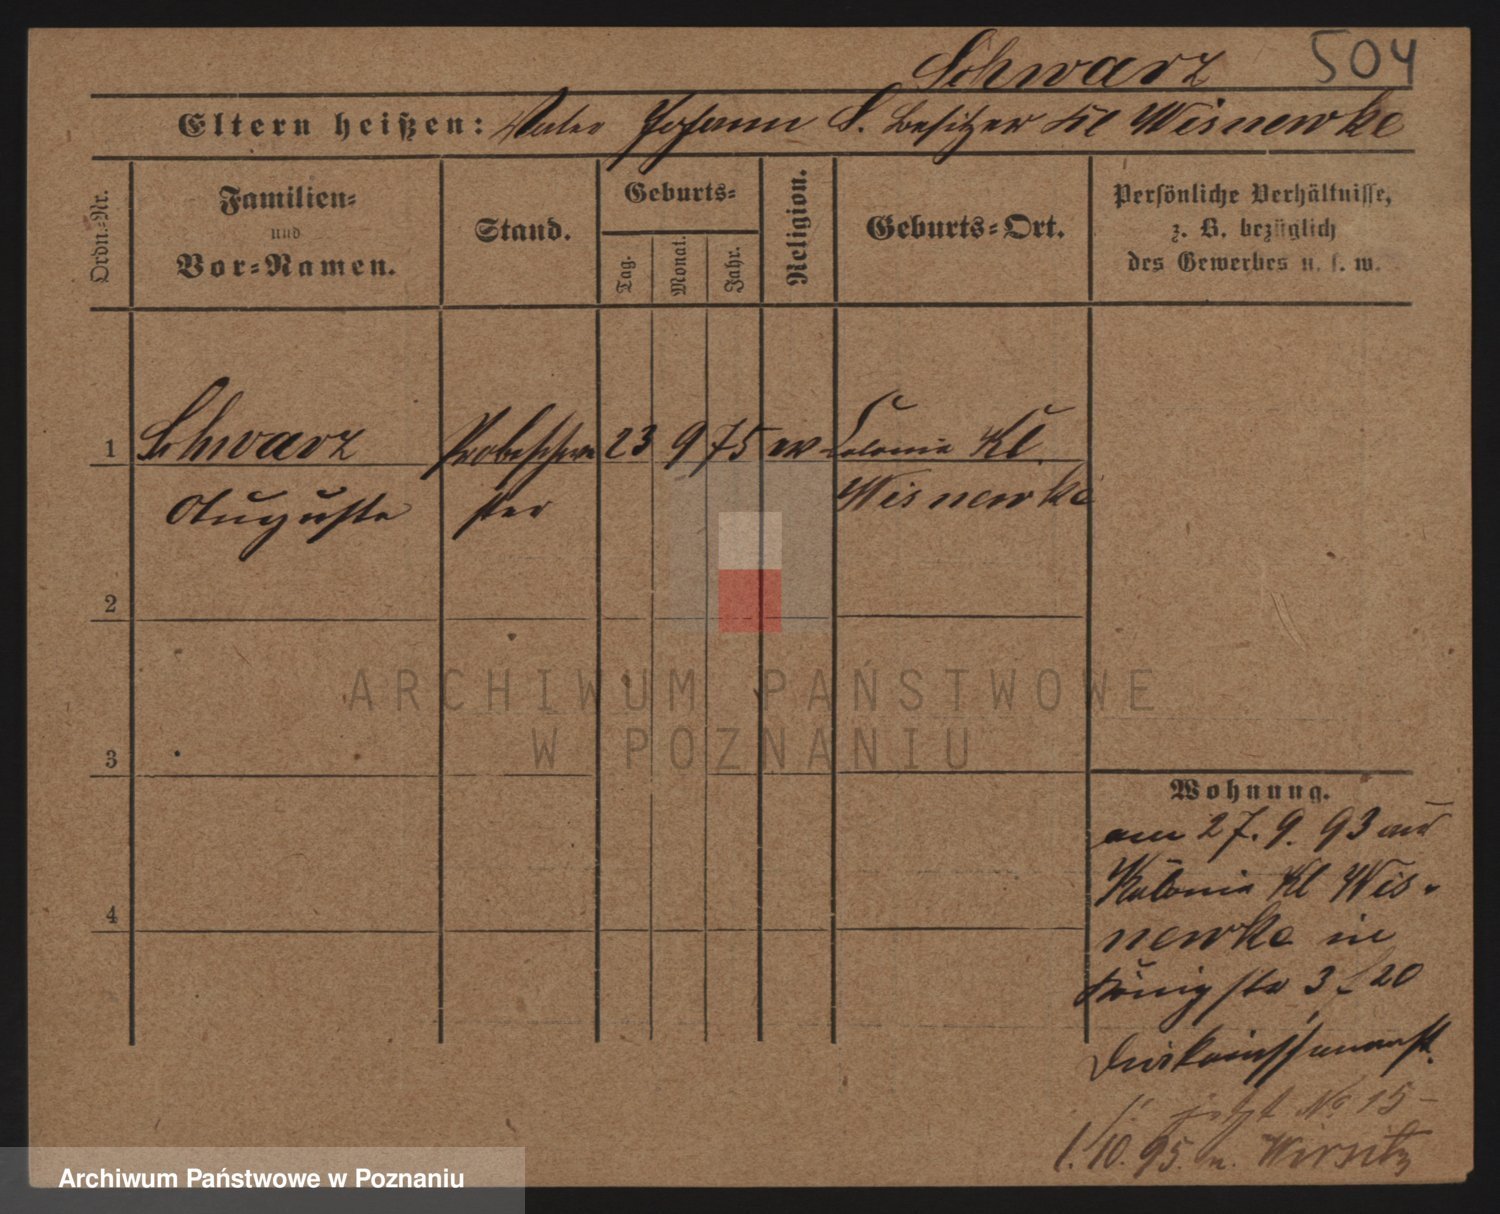 Schwarz 504
Eltern heißen: Vater Johann S. Besitzer Kl Wisnewke
Ordn.-Nr.
Familien-
und
Vor-Namen.
Stand.
Geburts-
Tag.
Monat.
Jahr.
Religion.
Geburts-Ort.
Persönliche Verhältnisse,
z. B. bezüglich
des Gewerbes u. s. w.
1 Schwarz Probeschwe 23 9 75 ev Colonie Kl.
Auguste ster Wisnewke
2
3
4
Wohnung.
am 27. 9. 93 aus
Kolonie Kl Wis-
newke in
Königstr 3 20
Diakonissenanst.
jetzt No. 15
1. 10. 95. n. Wirsitz
ARCHIWUM PAŃSTWOWE
W POZNANIU
Archiwum Państwowe w Poznaniu